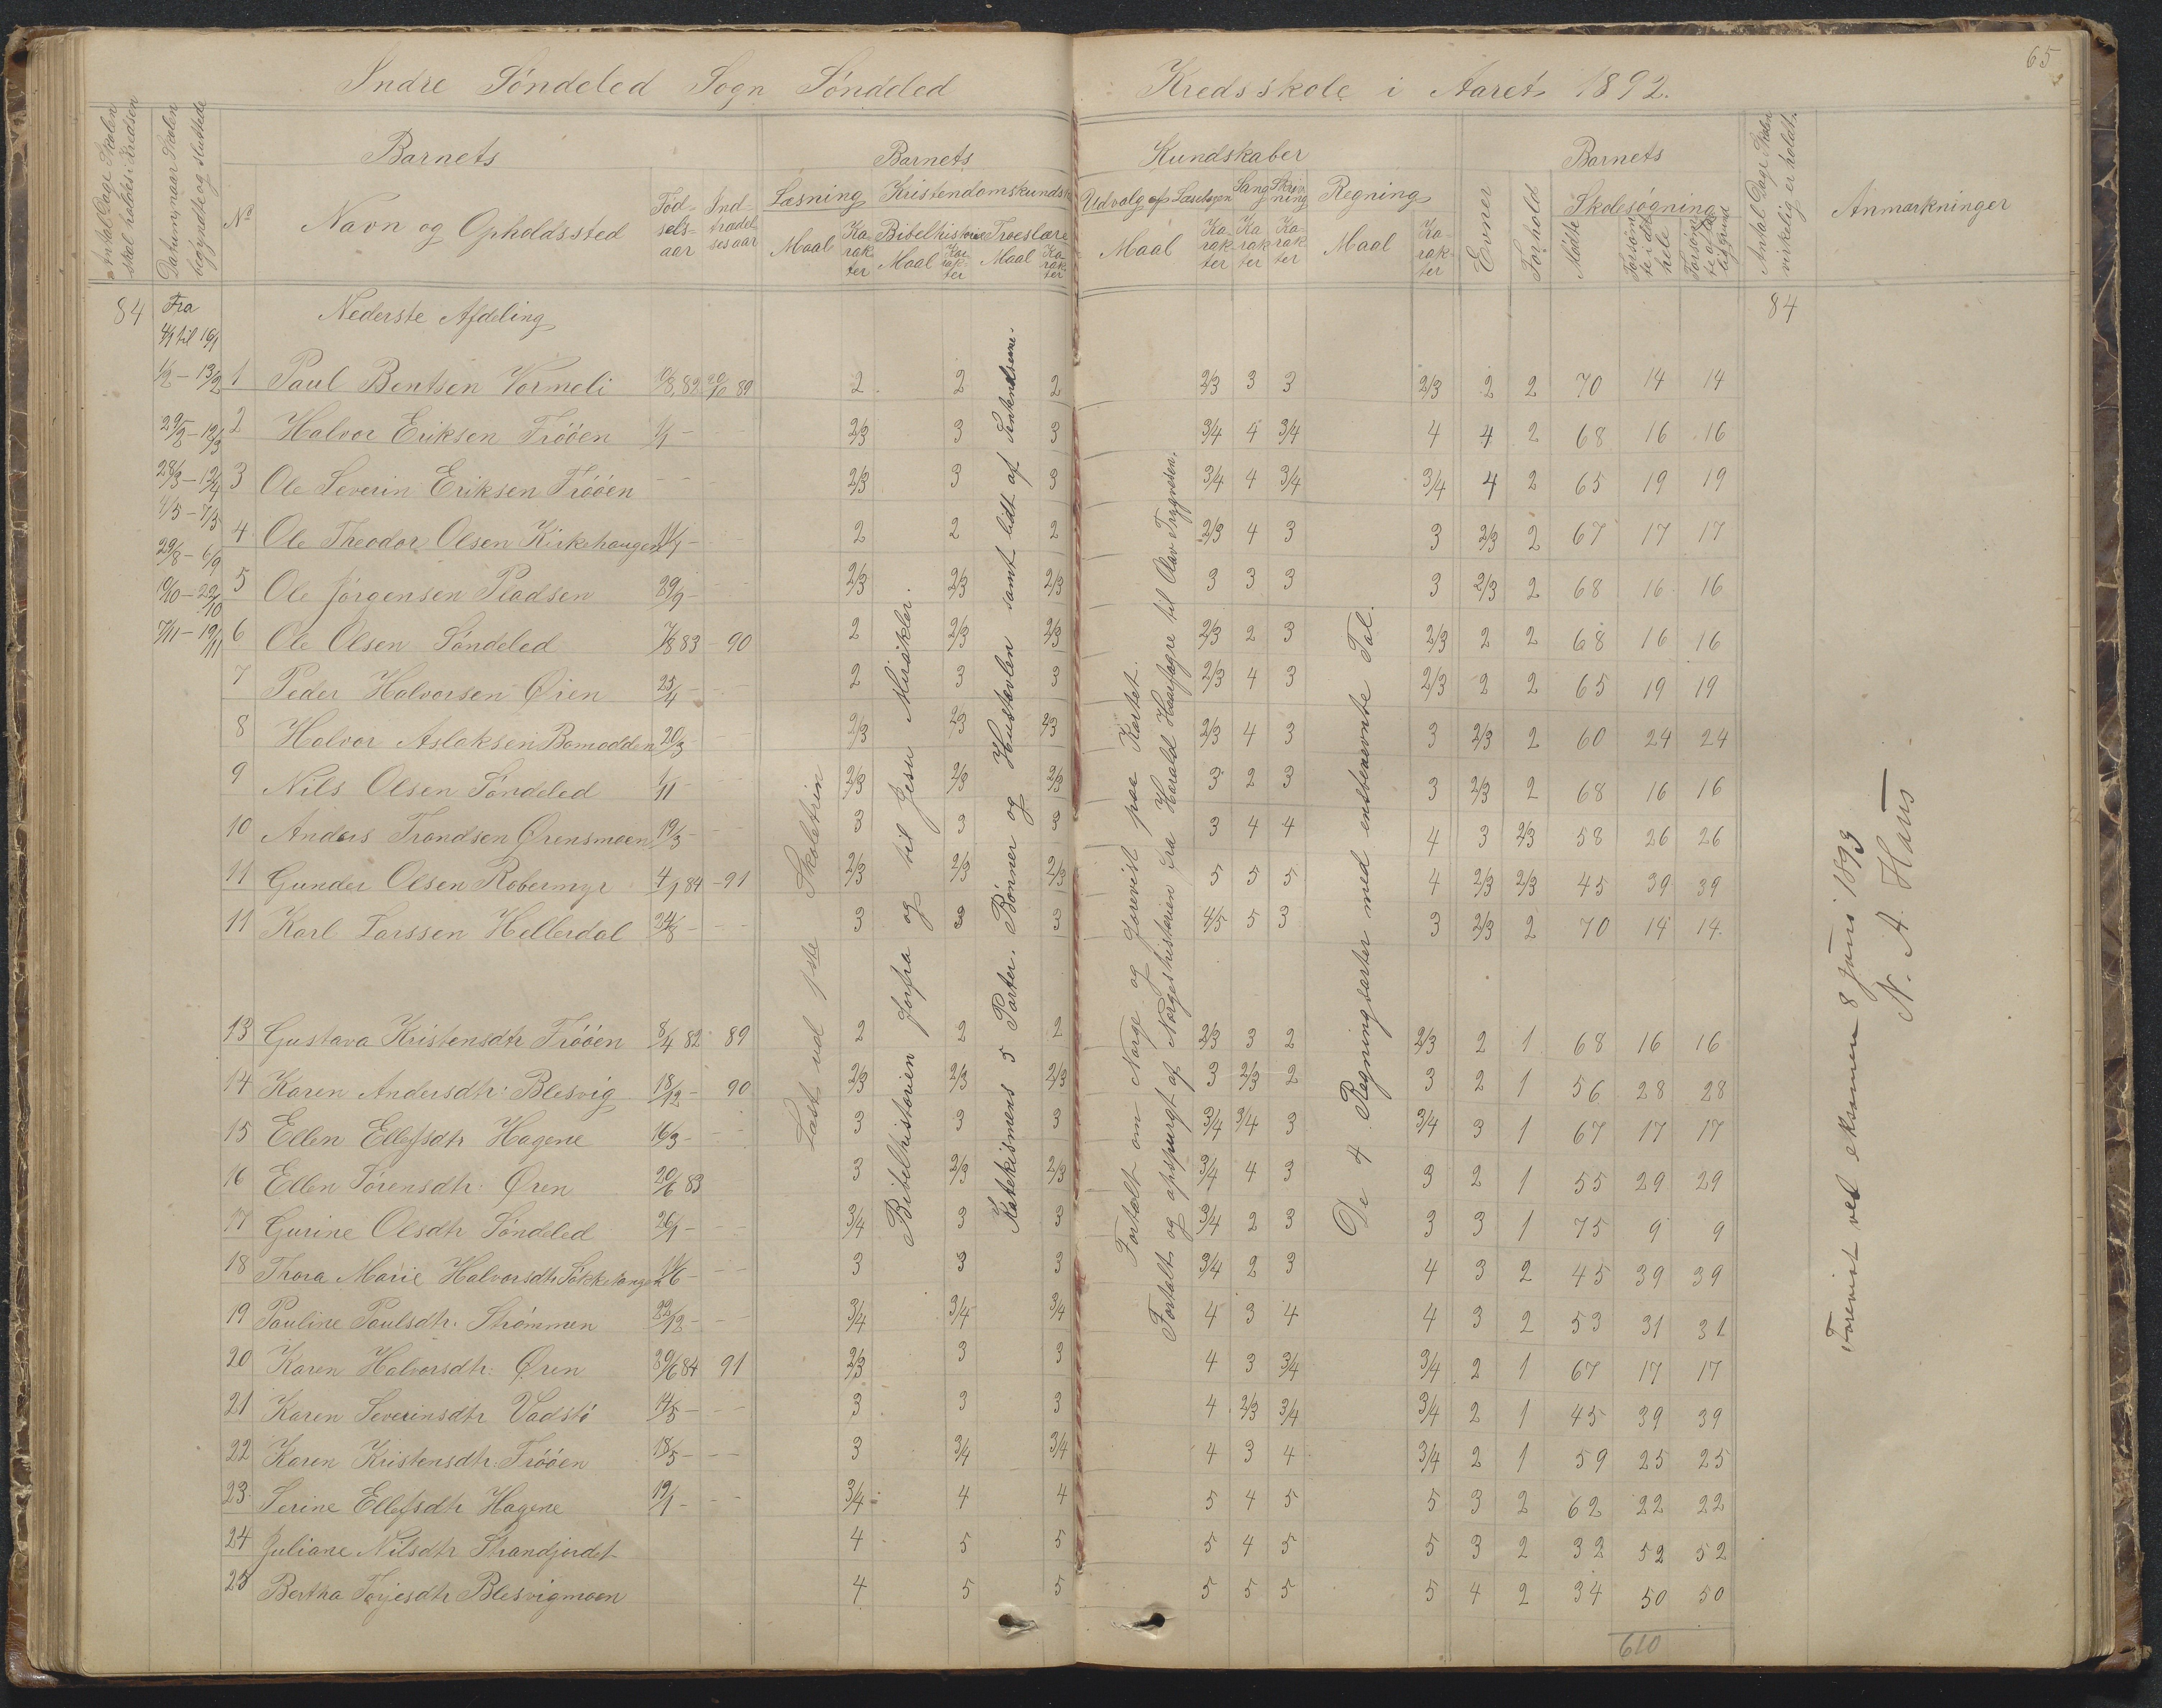 65
Indre Söndeled Sogn Söndeled Kredsskole i Aaret 1892.
Antal Dage Skolen skal holdes i Kredsen
Datum, naar Skolen begyndte og sluttede
Barnets
No
Navn og Opholdssted
Födselsaar
Indtrædelsesaar
Barnets Kundskaber
Læsning Kristendomskundsk
Maal Karakter
Bibelhistorie Troeslære
Maal Karakter Maal Karakter
Udvalg af Læsebogen Sang Skrivning Regning
Maal Karakter Karakter Karakter Maal Karakter
Barnets
Evner Forhold
Skolesøgning
Mødte
Forsømte i det hele
Antal Dage Skolen virkelig er holdt.
Anmærkninger
84 Fra 4/1 til 16/1 Nederste Afdeling 84
1/2 – 13/2
29/2 – 12/3
28/3 – 12/4
4/5 – 7/5
29/8 – 6/9
10/10 – 22/10
7/11 – 19/11
1 Paul Bentsen Vormeli 10/8, 82 20/10 89 2 2 2 2/3 3 3 2/3 2 2 70 14 14
2 Halvor Eriksen Trööen 1/1 – 2/3 3 3 3/4 4 3/4 4 4 2 68 16 16
3 Ole Severin Eriksen Trööen – – 2/3 3 3 3/4 4 3/4 3/4 4 2 65 19 19
4 Ole Theodor Olsen Kirkehaugen 11/1 – 2 2 2 2/3 4 3 3 2/3 2 67 17 17
5 Ole Jörgensen Pladsen 29/9 – 2/3 2/3 2/3 3 3 3 3 2/3 2 68 16 16
6 Ole Olsen Söndeled 7/8 83 – 90 2 2/3 2/3 2/3 2 3 2/3 2 2 68 16 16
7 Peder Halvorsen Øien 25/4 – 2 3 3 2/3 4 3 2/3 2 2 65 19 19
8 Halvor Aslaksen Bomodden 20/3 – 2/3 2/3 2/3 2/3 4 3 3 2/3 2 60 24 24
9 Nils Olsen Söndeled 1/11 – 2/3 2/3 2/3 3 2 3 3 2/3 2 68 16 16
10 Anders Trondsen Ørensmoen 19/3 – 3 3 3 3 4 4 4 3 2/3 58 26 26
11 Gunder Olsen Robermyr 4/1 84 – 91 2/3 2/3 2/3 5 5 5 4 2/3 2/3 45 39 39
11 Karl Larssen Hellerdal 24/3 – 3 3 3 4/5 5 3 3 2/3 2 70 14 14
13 Gustava Kristensdtr Trööen 8/4 82 89 2 2 2 2/3 3 2 2/3 2 1 68 16 16
14 Karen Andersdtr: Blesvig 18/12 – 90 2/3 2/3 2/3 3 2/3 2 3 2 1 56 28 28
15 Ellen Ellefsdtr Hagene 16/3 – 3 3 3 3/4 3/4 3 3/4 3 1 67 17 17
16 Ellen Sörensdtr: Øren 20/6 83 3 2/3 2/3 3/4 4 3 3 2 1 55 29 29
17 Gurine Olsdtr Söndeled 26/1 – 3/4 3 3 3/4 2 3 3 3 1 75 9 9
18 Thora Marie Halvorsdtr Sökketangen 11/6 – 3 3 3 3/4 2 3 4 3 2 45 39 39
19 Pauline Paulsdtr. Strömmen 22/12 – 3/4 3/4 3/4 4 3 4 4 3 2 53 31 31
20 Karen Halvorsdtr: Øren 30/6 84 91 2/3 3 3 4 3 3/4 3/4 2 1 67 17 17
21 Karen Severinsdtr Vadstö 14/5 – 3 3 3 4 2/3 3/4 3/4 2 1 45 39 39
22 Karen Kristensdtr. Trööen 18/5 – 3 3/4 3/4 4 3 4 3/4 2 1 59 25 25
23 Serine Ellefsdtr Hagene 19/1 – 3/4 4 4 5 4 5 5 3 2 62 22 22
24 Juliane Nilsdtr Strandjordet 4 5 5 5 4 5 5 3 2 32 52 52
25 Bertha Terjesdtr Blesvigmoen 4 5 5 5 5 5 5 4 2 34 50 50
610
Læst ud 1ste Skoletrin
Bibelhistorien forfra og til Jesu Mirakler.
Katekismens 5 Parter. Bönner og Hustavlen samt lidt af
Fortalt om Norge og forevist paa Kartet.
Fortalt og opspurgt af Norgeshistorien fra Harald Haarfagre til Olav Trygvesen.
De 4 Regningsarter med ensbenævnte Tal.
Forevist ved eksamen 8 Juni 1893
N. A. Hass